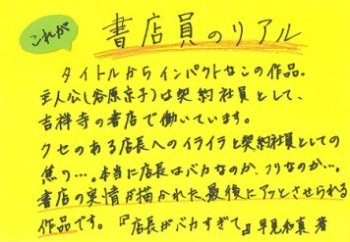 これが
書店員のリアル
タイトルからインパクトなこの作品.
主人公(谷原京子)は契約社員として、
吉祥寺の書店で働いています。
クセのある店長へのイライラと契約社員としての
焦り…。本当に店長はバカなのか、フリなのか…。
書店の実情が描かれた最後にアッとさせられる
作品です。『店長がバカすぎて』早見和真 著